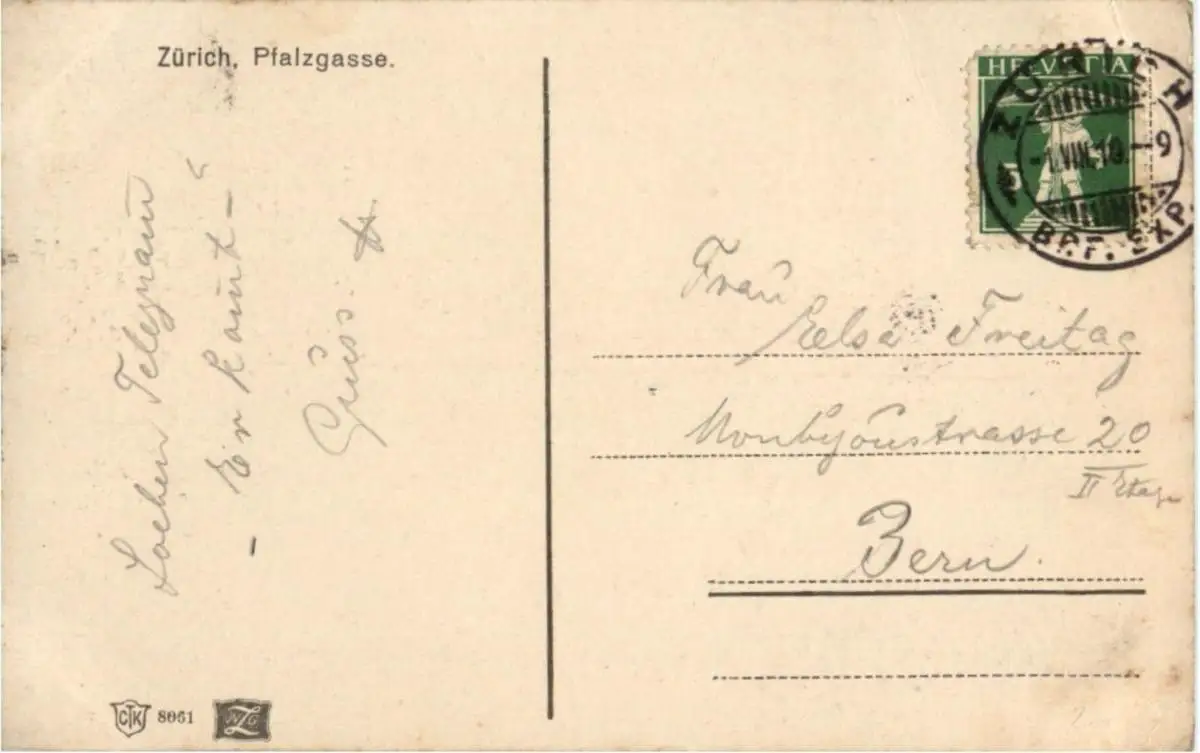 Zürich, Pfalzgasse.
Soeben Telegramm
- Er kommt - "
Gruss.
HELVETIA
5
ZÜRICH
-1.VIII.10.-9
BRF. EXP.
Frau
Elsa Freitag
Monbijoustrasse 20
II Etage
Bern.
CTK 8061
NZG